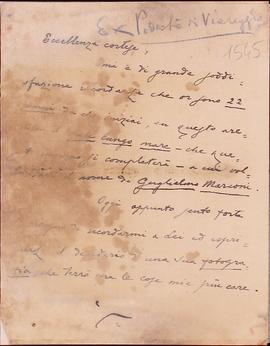 Ex Podestà di Viareggio
1945
Eccellenza cortese,
mi è di grande soddi-
sfazione ricordarLe che or sono 22
anni da che iniziai, in questo
lungo mare - che
completerà - a cui
nome di Guglielmo Marconi.
Oggi appunto sento forte
di ricordarmi a Lei ed
il desiderio di una Sua fotogra-
fia, che terrò tra le cose mie più care.